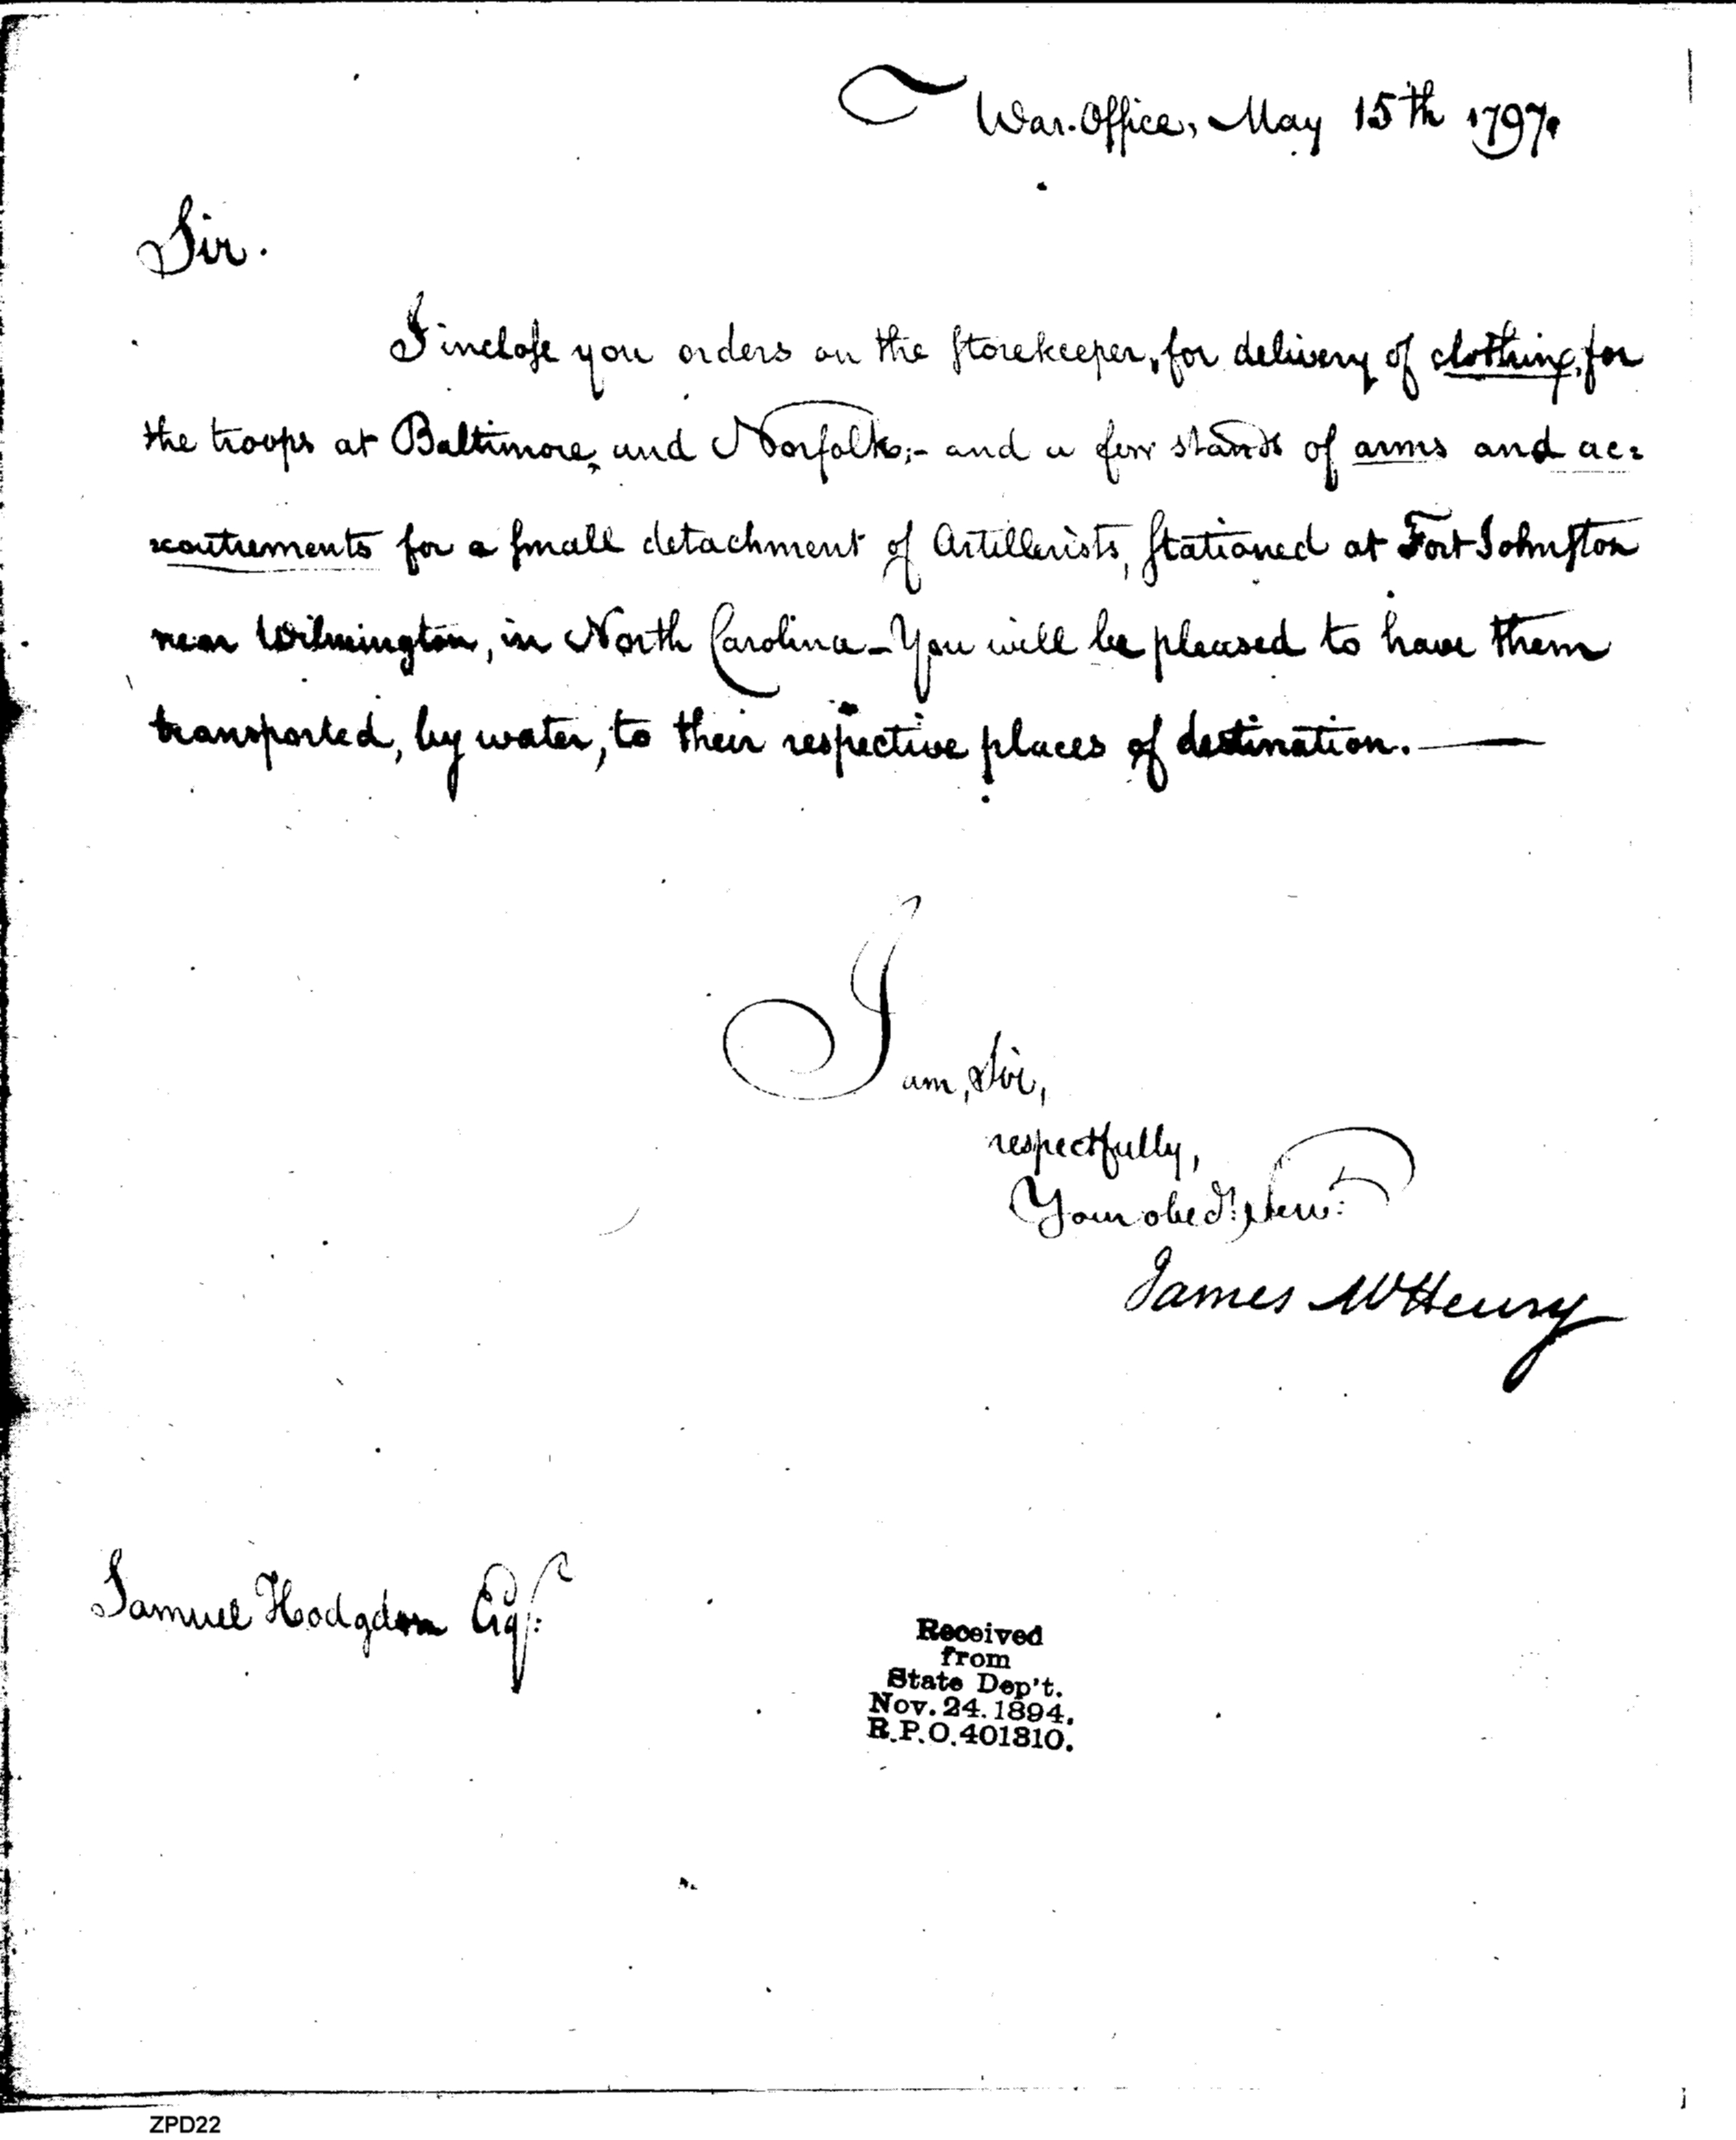 War Office, May 15th 1797.
Sir.
I inclose you orders on the Storekeeper, for delivery of clothing, for
the troops at Baltimore, and Norfolk;- and a few stands of arms and ac=
coutrements for a small detachment of Artillerists, stationed at Fort Johnston
near Wilmington, in North Carolina - You will be pleased to have them
transported, by water, to their respective places of destination. —
I am, Sir,
respectfully,
Your obed.t: Serv.t:
James McHenry
Samuel Hodgdon Esq.r:
Received
from
State Dep't.
Nov. 24. 1894.
R.P.O. 401810.
ZPD22